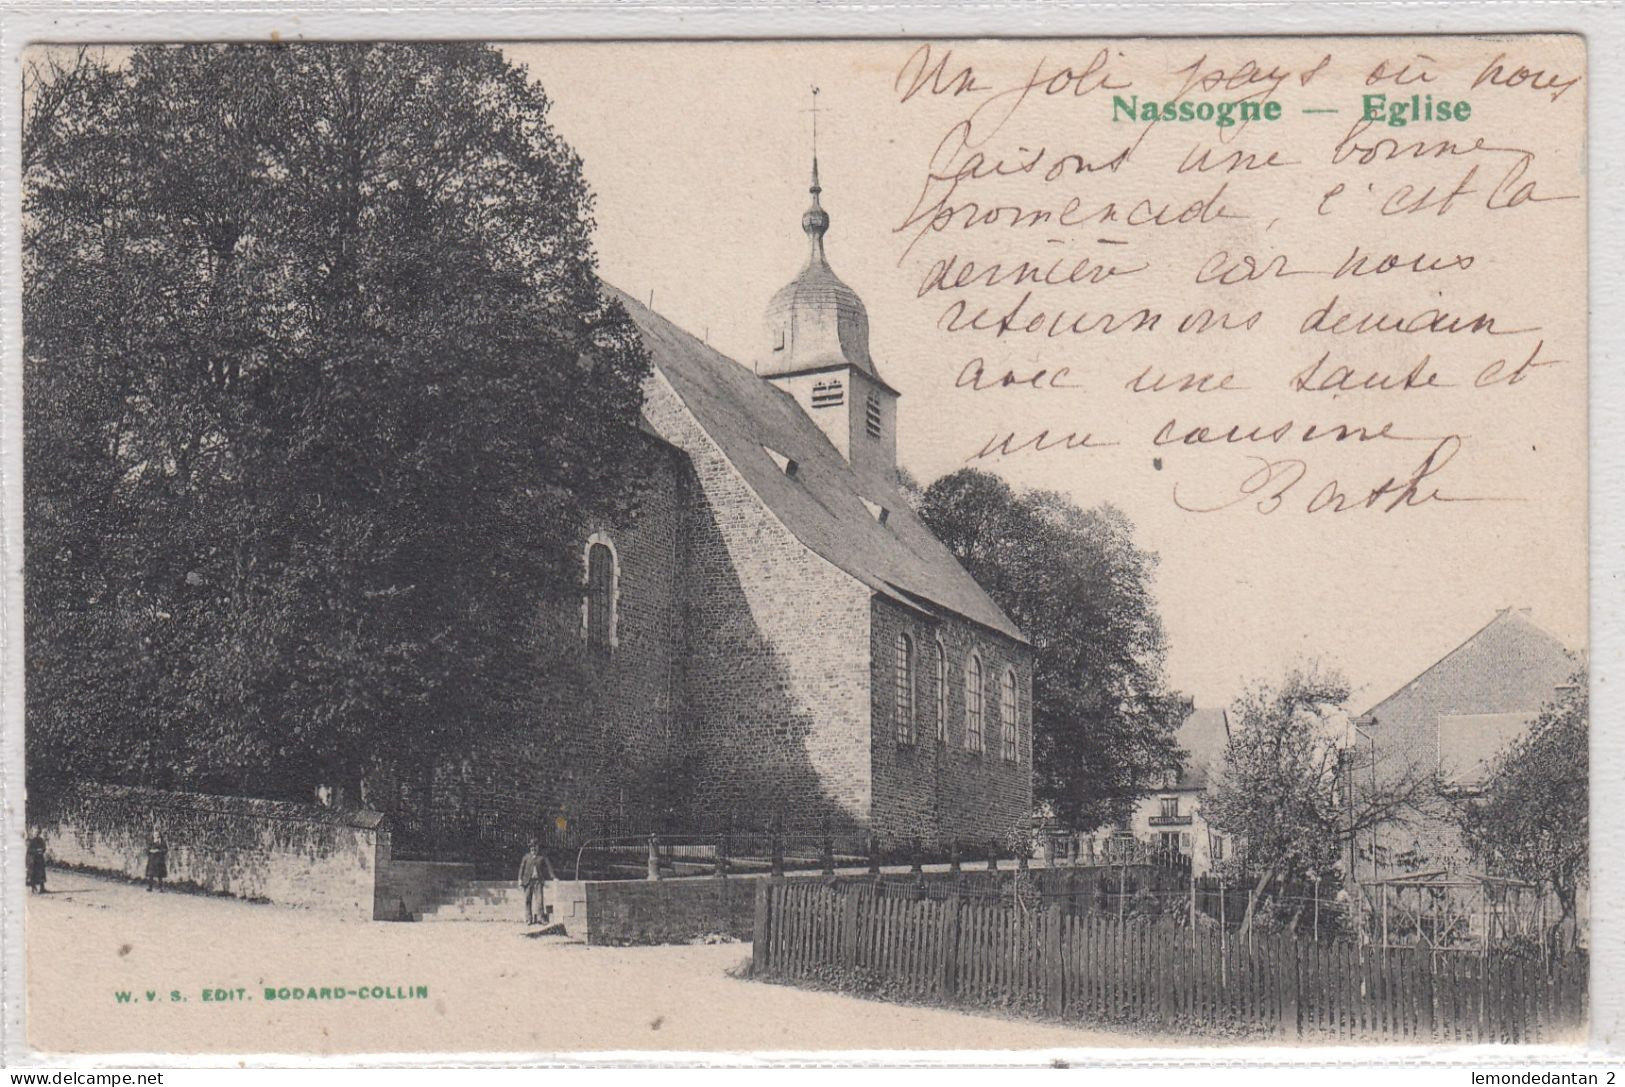 Un joli pays où nous
Nassogne — Eglise
faisons une bonne
promenade, c'est la
dernière car nous
retournons demain
avec une tante et
une cousine
Berthe
W. V. S. EDIT. BODARD-COLLIN
delcampe.net
lemondedantan 2